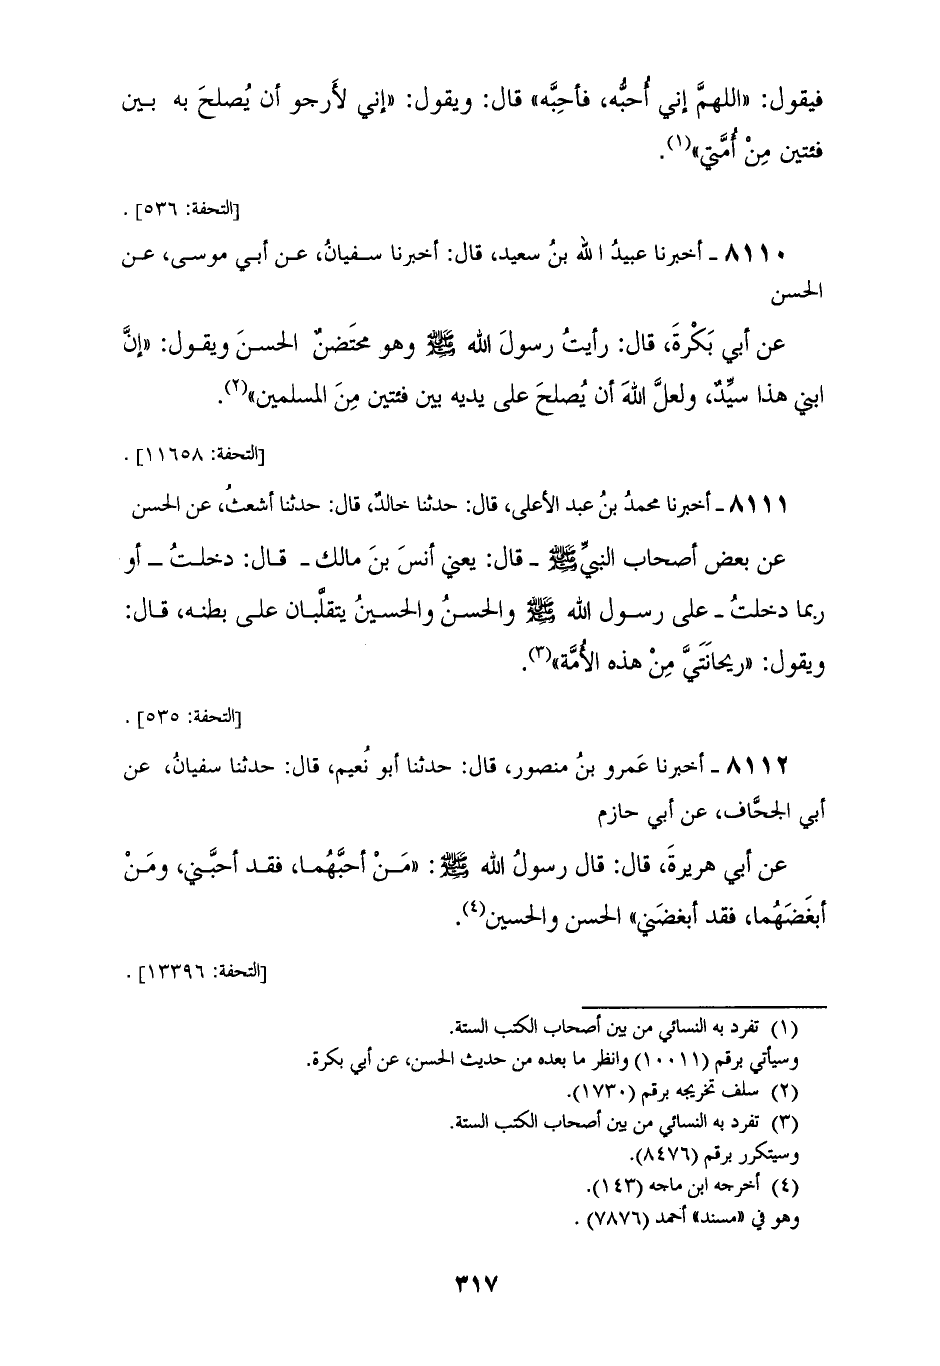 فيقول: «اللهمَّ إني أُحبُّه، فأحِبَّه» قال: ويقول: «إني لأَرجو أن يُصلحَ به بين
فئتين مِنْ أُمَّتي»(١).
[التحفة: ٥٣٦] .
٨١١٠ ـ أخبرنا عبيدُ الله بنُ سعيد، قال: أخبرنا سفيانُ، عن أبي موسى، عن
الحسن
عن أبي بَكْرةَ، قال: رأيتُ رسولَ الله ﷺ وهو محتَضنٌ الحسنَ ويقول: «إنَّ
ابني هذا سيِّدٌ، ولعلَّ اللهَ أن يُصلحَ على يديه بين فئتين مِنَ المسلمين»(٢).
[التحفة: ١١٦٥٨] .
٨١١١ ـ أخبرنا محمدُ بنُ عبد الأعلى، قال: حدثنا خالدٌ، قال: حدثنا أشعثُ، عن الحسن
عن بعض أصحاب النبيِّ ﷺ ـ قال: يعني أنسَ بنَ مالك ـ قال: دخلتُ ـ أو
ربما دخلتُ ـ على رسول الله ﷺ والحسنُ والحسينُ يتقلَّبان على بطنه، قال:
ويقول: «ريحانَتَيَّ مِنْ هذه الأُمَّة»(٣).
[التحفة: ٥٣٥] .
٨١١٢ ـ أخبرنا عَمرو بنُ منصور، قال: حدثنا أبو نُعيم، قال: حدثنا سفيانُ، عن
أبي الجحَّاف، عن أبي حازم
عن أبي هريرةَ، قال: قال رسولُ الله ﷺ : «مَنْ أحبَّهُما، فقد أحبَّني، ومَنْ
أبغَضَهُما، فقد أبغضَني» الحسن والحسين(٤).
[التحفة: ١٣٣٩٦] .
(١) تفرد به النسائي من بين أصحاب الكتب الستة.
وسيأتي برقم (١٠٠١١) وانظر ما بعده من حديث الحسن، عن أبي بكرة.
(٢) سلف تخريجه برقم (١٧٣٠).
(٣) تفرد به النسائي من بين أصحاب الكتب الستة.
وسيتكرر برقم (٨٤٧٦).
(٤) أخرجه ابن ماجه (١٤٣).
وهو في «مسند» أحمد (٧٨٧٦) .
٣١٧